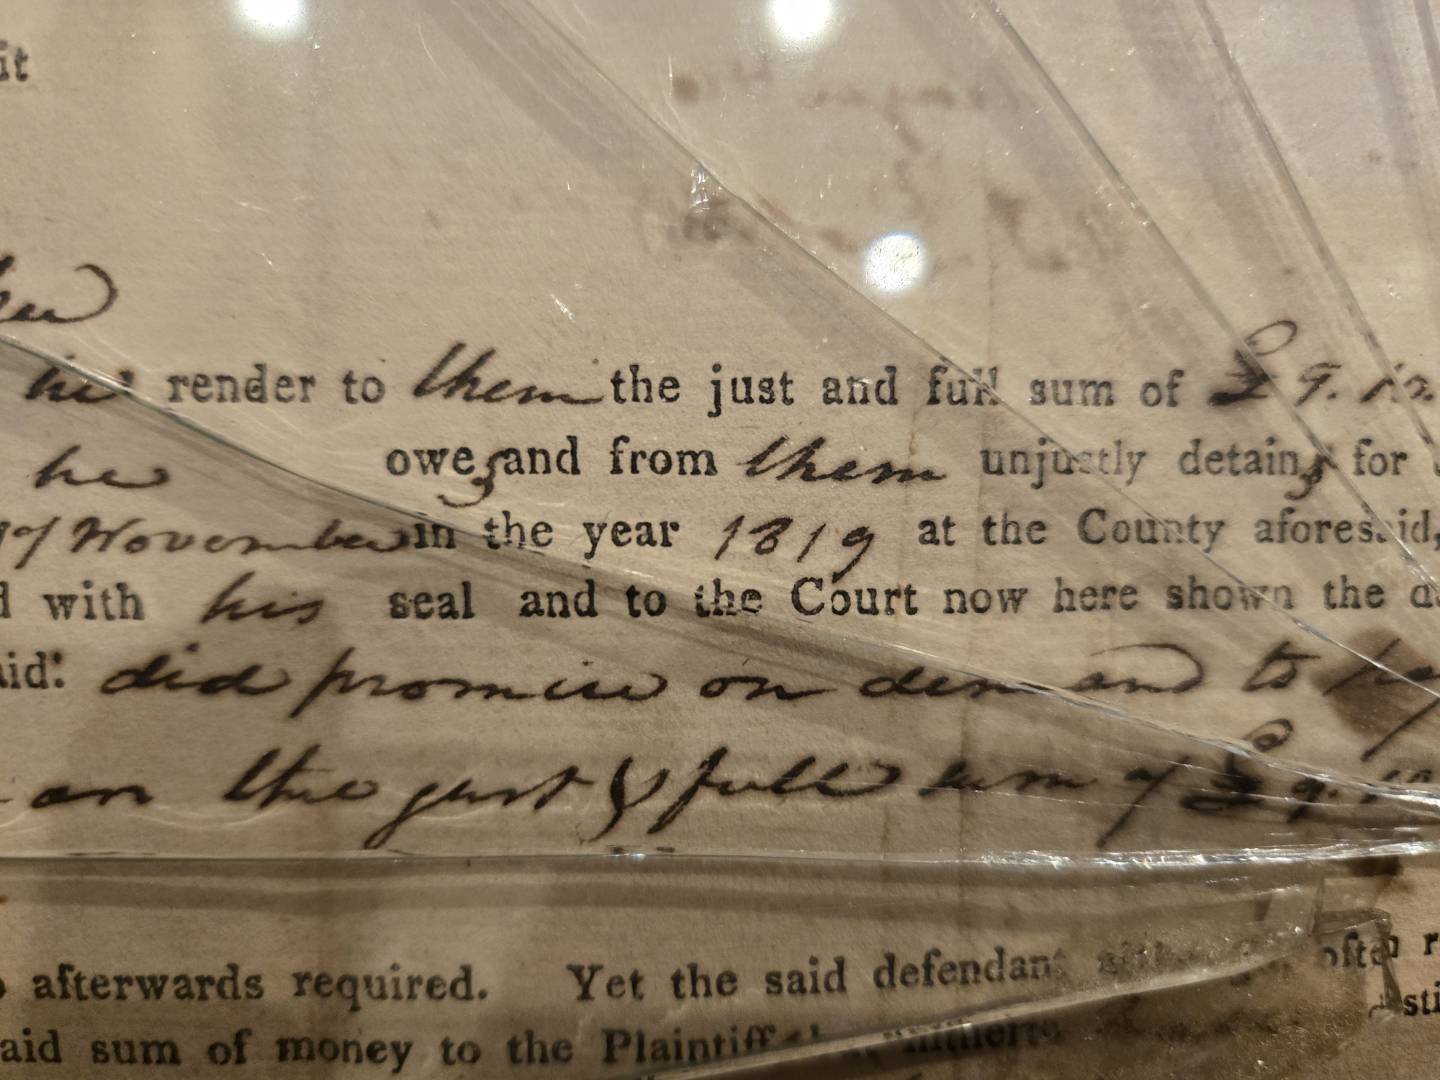 it
his render to them the just and full sum of £ 9. 12
he owes and from them unjustly detains for
of November in the year 1819 at the County aforesaid,
d with his seal and to the Court now here shown the da
aid: did promise on demand to pa
on the just & full sum of £ 9. 12
afterwards required. Yet the said defendant often r
aid sum of money to the Plaintiff hitherto